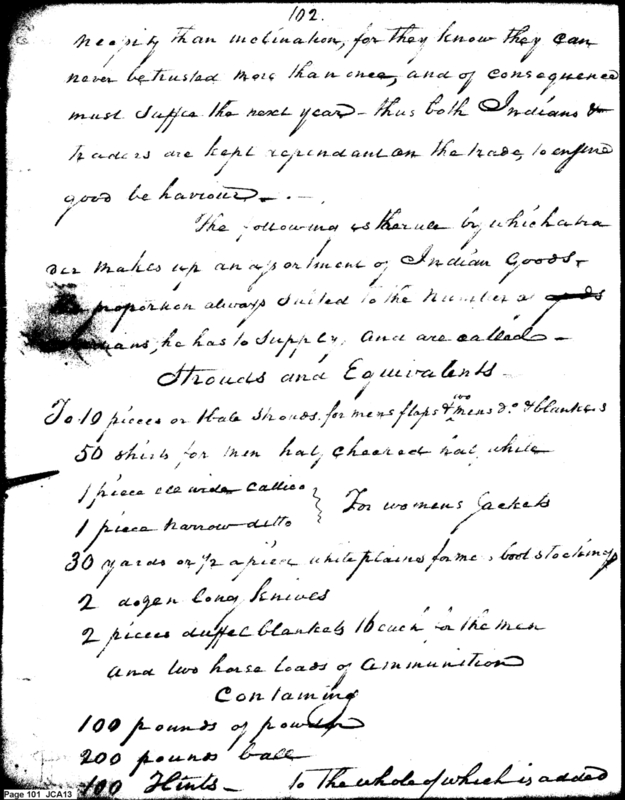 102.
necessity than inclination, for they know they can
never be trusted more than once, and of consequence
must suffer the next year – thus both Indians &
traders are kept dependant on the trade, to ensure
good behaviour – . –
The following is the rule by which a tra
der makes up an assortment of Indian Goods,
proportion always suited to the number of goods
he has to supply, and are called –
Strouds and Equivalents –
To 10 pieces or 1 bale strouds. for mens flaps & womens do. & blankets
50 shirts for men half checred half white
1 piece ell wide callico
For womens Jackets
1 piece narrow ditto
30 yards or 1/2 a piece white plains for mens boot stockings
2 dozen long knives
2 pieces duffel blankets 16 each for the men
and two horse loads of ammunition
Containing
100 pounds of powder
200 pounds ball
100 Flints – to the whole of which is added
Page 101 JCA13